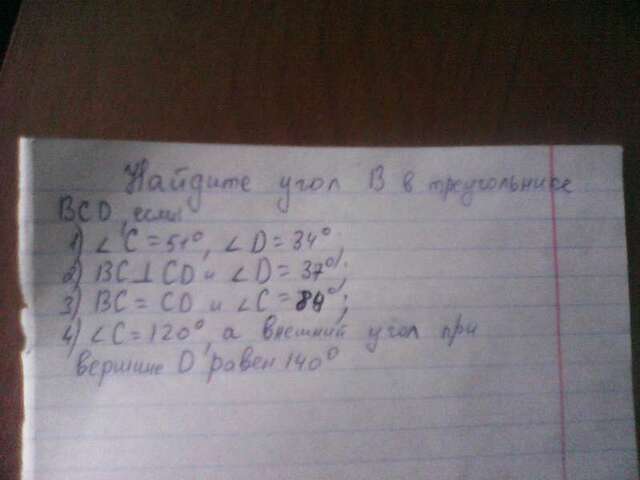 Найдите угол B в треугольнике
BCD, если:
1) ∠C=51°, ∠D=34°;
2) BC⊥CD и ∠D=37°;
3) BC=CD и ∠C=84°;
4) ∠C=120°, а внешний угол при
вершине D равен 140°